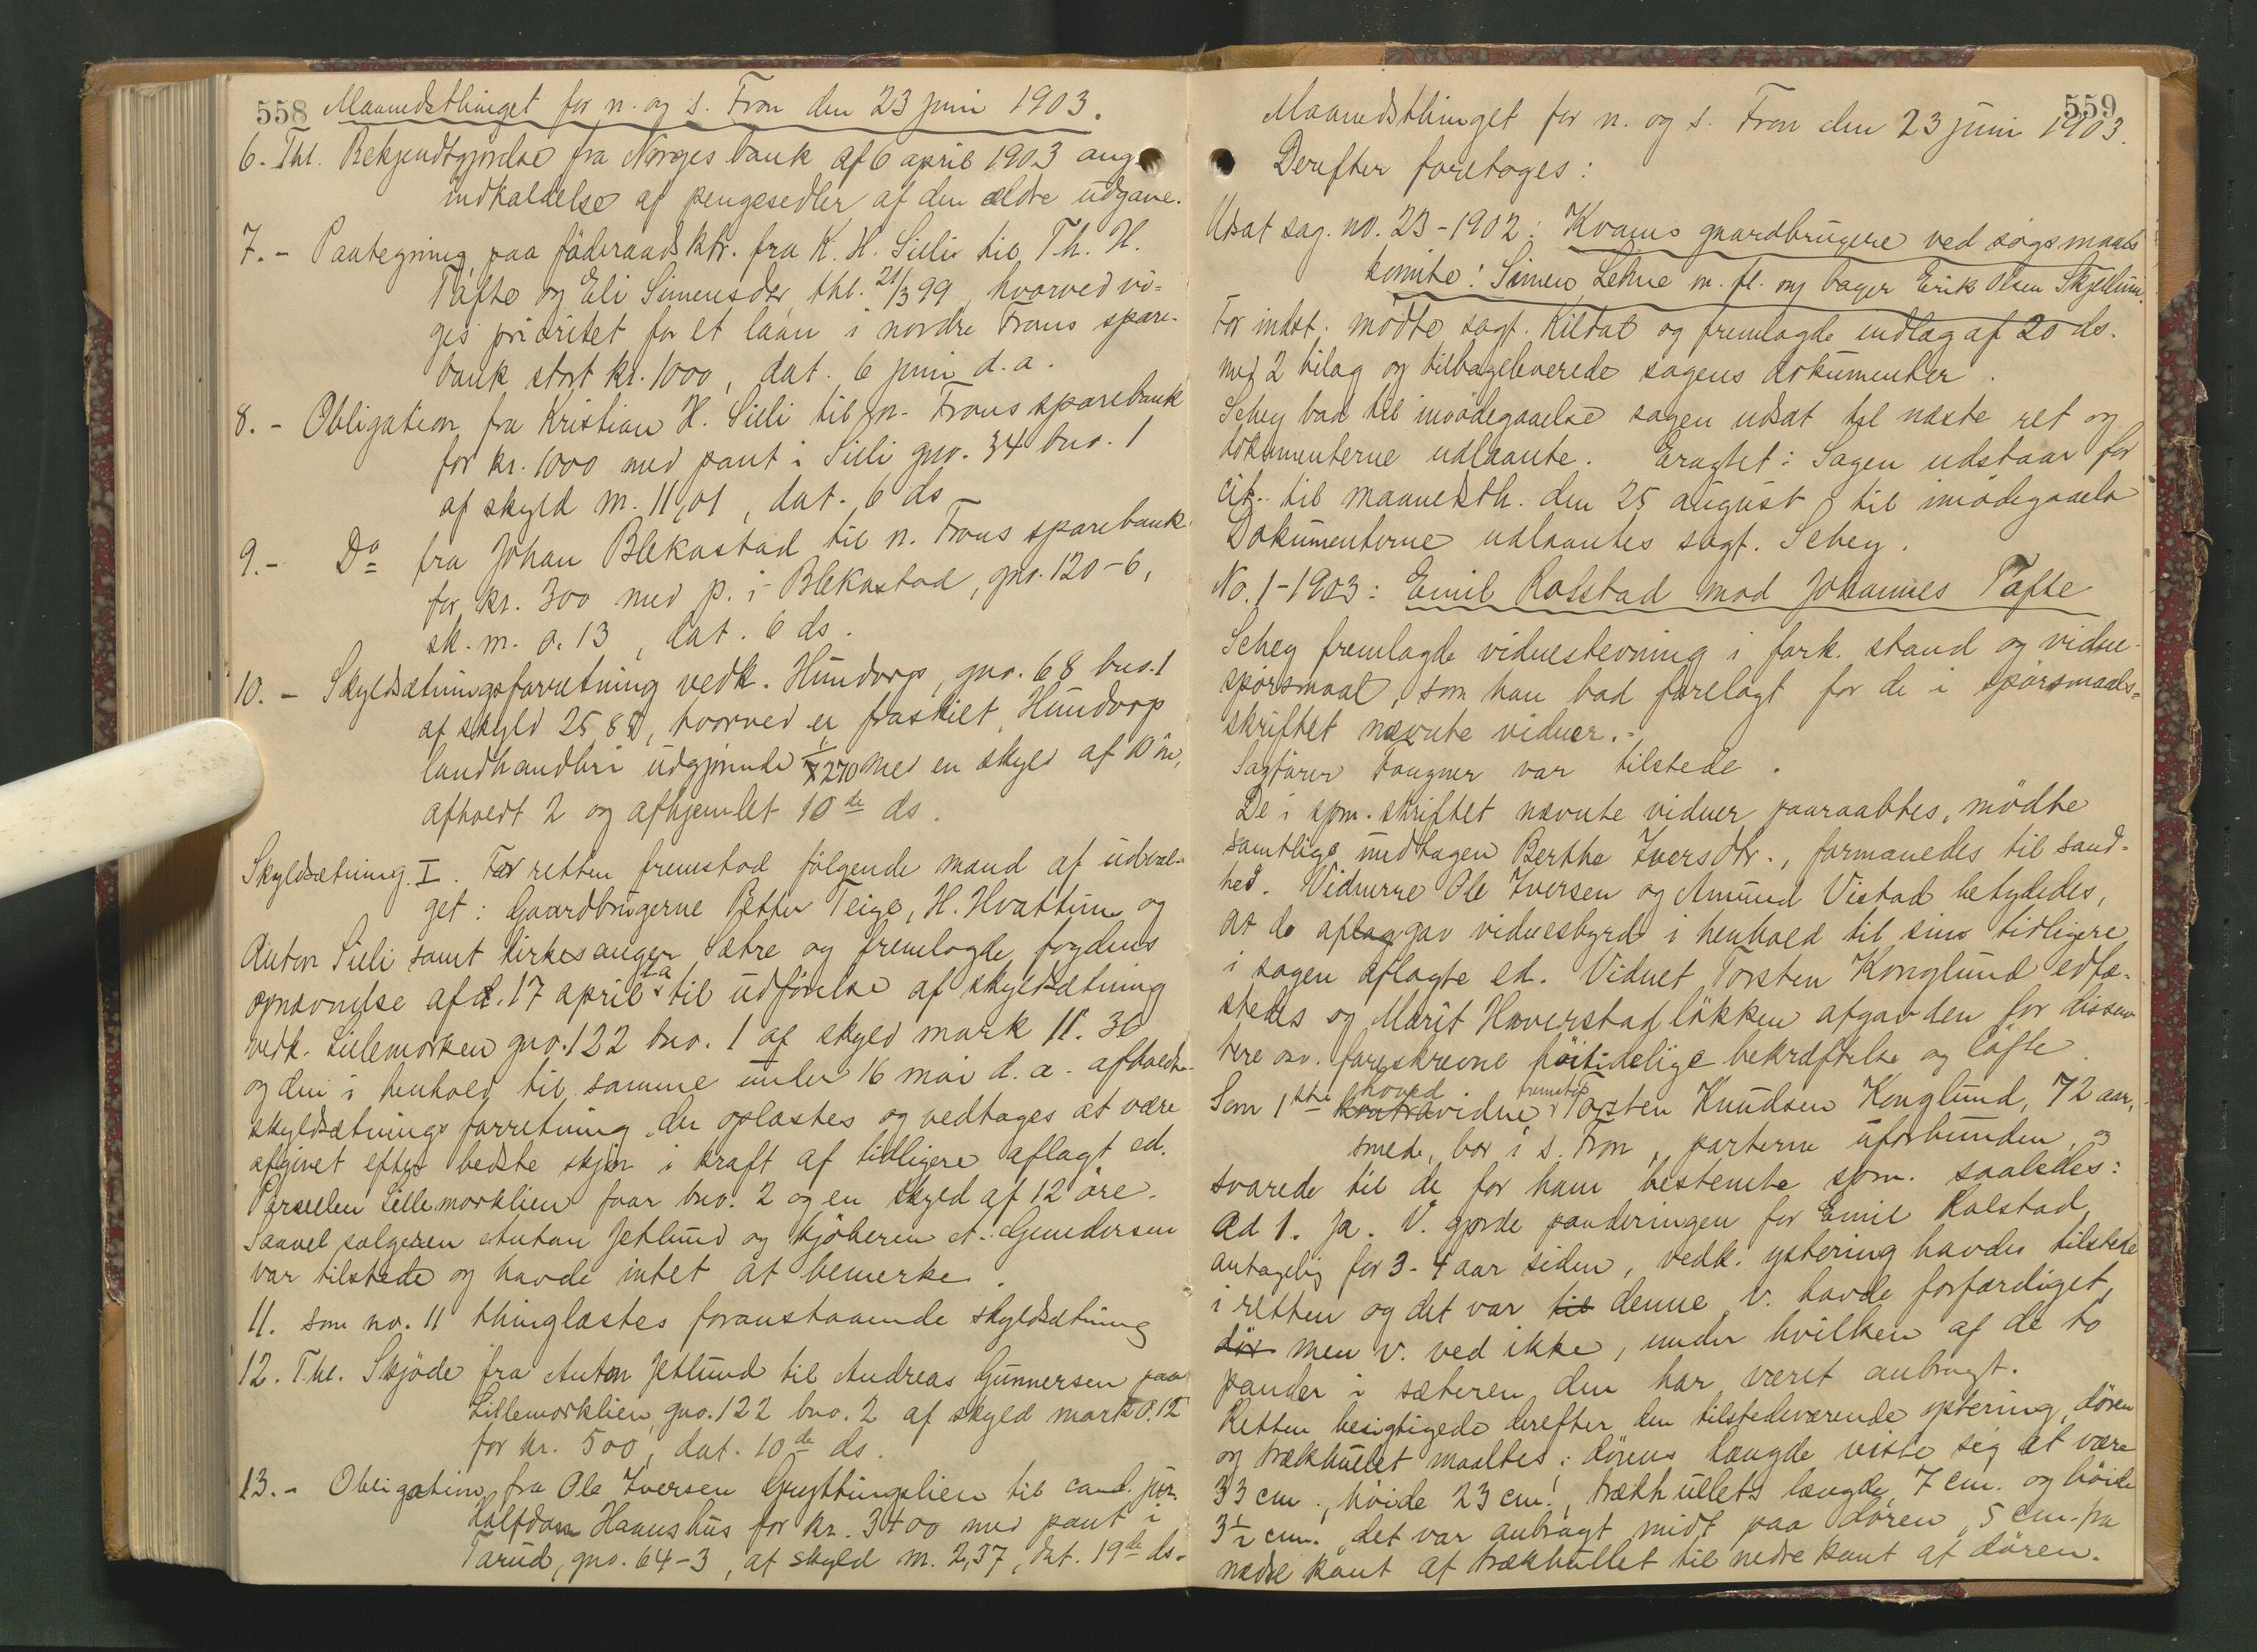 558 Maanedsthinget for n. og s. Fron den 23 juni 1903.
6. Thl. Bekjendtgjørelse fra Norges bank af 6 april 1903 ang.
indkaldelse af pengesedler af den ældre udgave.
7. - Paategning paa föderaadsktr. fra K. H. Silli til Th. H.
Tofte og Eli Simensdtr, thl. 21/3 99, hvorved vi-
ges prioritet for et laan i nordre Frons spare-
bank stort kr. 1000, dat. 6 juni d.a.
8. - Obligation fra Kristian H. Silli til n. Frons sparebank
for kr. 1000 med pant i Silli gno. 34 bno. 1
af skyld m. 11,01, dat. 6 ds
9. - Do fra Johan Blekastad til n. Frons sparebank
for kr. 300 med p. i Blekastad, gno. 120-6,
sk. m. 0.13, dat. 6 ds.
10. - Skyldsætningsforretning vedk. Hundorp, gno. 68 bno. 1
af skyld 25 88, hvorved er fraskilt Hundorp
landhandleri udgjørende 1/270 med en skyld af 10 øre,
afholdt 2 og afhjemlet 10de ds.
Skyldsætning. I. For retten fremstod følgende mænd af udval-
get: Gaardbrugerne Petter Teige, H. Hvattum og
Anton Silli samt kirkesanger Sætre og fremlagde fogdens
opnævnelse af d. 17 april d.a. til udførelse af skyldsætning
vedk. Lillemorken gno. 122 bno. 1 af skyld mark 11.36
og den i henhold til samme under 16 mai d.a. afholdte
skyldsætnings forretning der oplæstes og vedtages at være
afgivet efter bedste skjøn i kraft af tidligere aflagt ed.
Parsellen Lillemorklien faar bno. 2 og en skyld af 12 øre.
Saavel sælgeren Anton Jetlund og kjöberen A. Gundersen
var tilstede og havde intet at bemerke.
11. som no. 11 thinglæstes foranstaaende skyldsætning
12. Thl. Skjöde fra Anton Jetlund til Andreas Gunnersen paa
Lillemorklien gno. 122 bno. 2 af skyld mark 0.12
for kr. 500, dat. 10de ds.
13. - Obligation fra Ole Iversen Gryttingslien til cand. jur.
Halfdan Haanshus for kr. 3400 med pant i
Tarud, gno. 64-3, af skyld m. 2,37, dat. 19de ds.
559
Maanedsthinget for n. og s. Fron den 23 juni 1903.
Derefter foretoges:
Udsat sag. no. 23-1902: Kvams gaardbrugere ved søgsmaals
komite: Simen Lehne m. fl. mj bager Erik Olsen Skjellum.
For indst. mödte sagf. Kildal og fremlagde indlæg af 20 ds.
med 2 bilag og tilbageleverede sagens dokumenter.
Schey bad til imödegaaelse sagen udsat til næste ret og
dokumenterne udlaante. Eragtet: Sagen udstaar for
cit. til maanedsth. den 25 august til imödegaaelse
Dokumenterne udlaantes sagf. Schey.
No. 1-1903: Emil Kolstad mod Johannes Tofte
Schey fremlagde vidnestevning i fork. stand og vidne-
spörsmaal, som han bad forelagt for de i spörsmaals-
skriftet nævnte vidner.-
Sagförer Fougner var tilstede.
De i spm. skriftet nævnte vidner paaraabtes, mödte
samtlige undtagen Berthe Iversdtr., formanedes til sand-
hed. Vidnerne Ole Iversen og Amund Vistad betydedes,
at de aflag gav vidnesbyrd i henhold til sin tidligere
i sagen aflagte ed. Vidnet Torsten Konglund edfæ-
stedes og Marit Haverstadløkken afgav den for dissen-
tere osv. foreskrevne höitidelige bekræftelse og löfte.
Som 1ste kontra hoved vidne fremstod Torsten Knudsen Konglund, 72 aar,
smed, bor i s. Fron, parterne uforbunden og
svarede til de for ham bestemte spm. saaledes:
Ad 1. Ja. V. gjorde panderingen for Emil Kolstad
antagelig for 3-4 aar siden, vedk. ystering havdes tilstede
i retten og det var til denne V. havde forfærdiget,
dör men V. ved ikke, under hvilken af de to
pander i sæteren den har været anbragt.
Retten besigtigede derefter den tilstedeværende ystering, dören
og trækhullet maaltes: dörens længde viste sig at være
33 cm., höide 23 cm., trækhullets længde 7 cm. og höide
3 1/2 cm., det var anbragt midt paa dören, 5 cm. fra
nedre kant af trækhullet til nedre kant af dören.